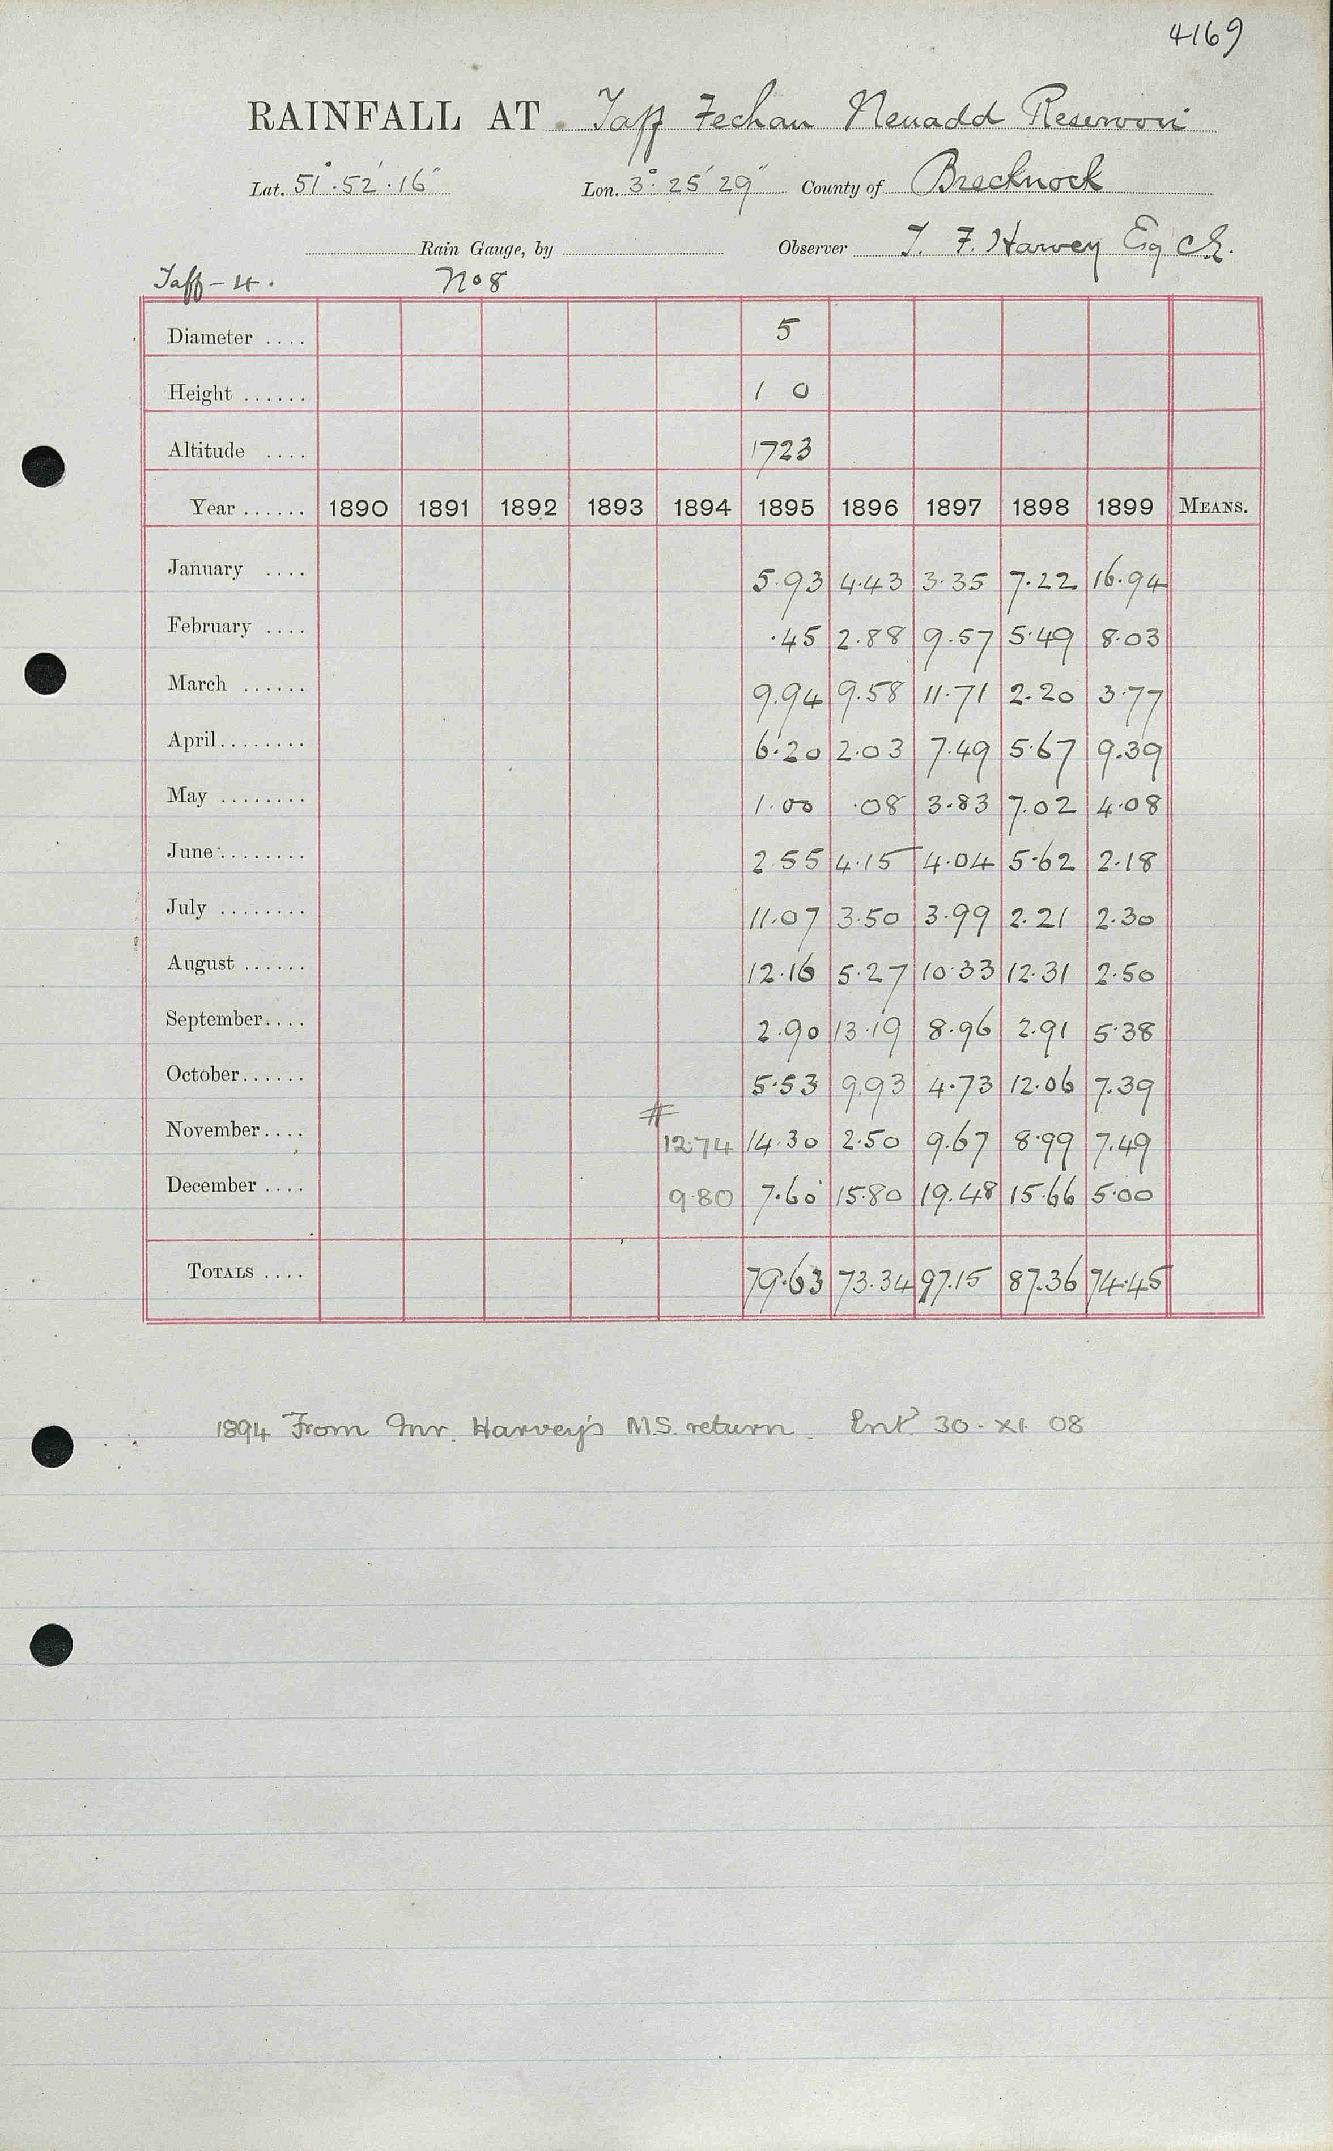 4169
RAINFALL AT Taff Fechan Neuadd Reservoir
Lat. 51° 52' 16" Lon. 3° 25' 29" County of Brecknock
Rain Gauge, by Observer T. F. Harvey Esq C.E.
Taff - 4. No 8
Diameter .... 5
Height ...... 1 0
Altitude .... 1723
Year ...... 1890 1891 1892 1893 1894 1895 1896 1897 1898 1899 MEANS.
January .... 5.93 4.43 3.35 7.22 16.94
February .... .45 2.88 9.57 5.49 8.03
March ...... 9.94 9.58 11.71 2.20 3.77
April........ 6.20 2.03 7.49 5.67 9.39
May ........ 1.00 .08 3.83 7.02 4.08
June ........ 2.55 4.15 4.04 5.62 2.18
July ........ 11.07 3.50 3.99 2.21 2.30
August ...... 12.16 5.27 10.33 12.31 2.50
September.... 2.90 13.19 8.96 2.91 5.38
October...... 5.53 9.93 4.73 12.06 7.39
November.... # 12.74 14.30 2.50 9.67 8.99 7.49
December .... 9.80 7.60 15.80 19.48 15.66 5.00
TOTALS .... 79.63 73.34 97.15 87.36 74.45
1894 From Mr. Harvey's M.S. return. Entd 30.XI.08